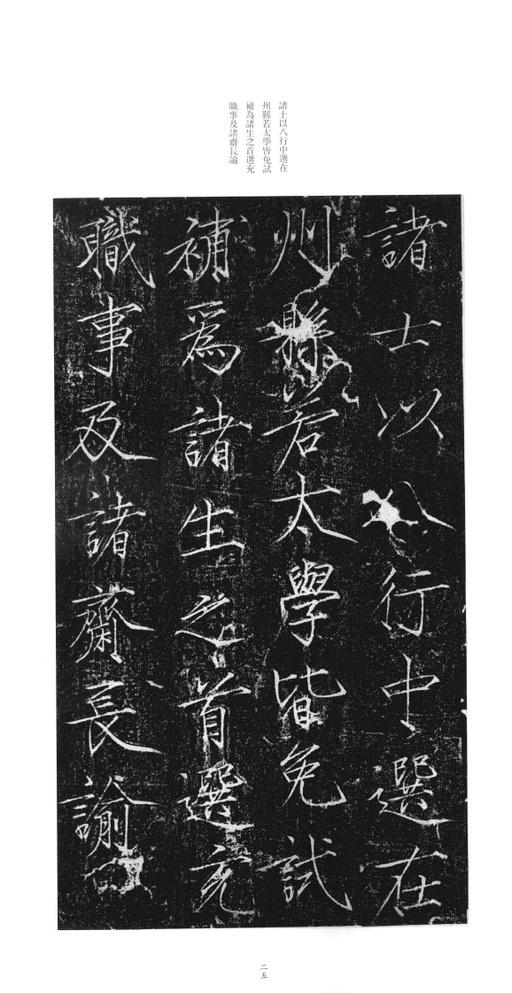 諸士以八行中選在
州縣若太學皆免試
補為諸生之首選充
職事及諸齋長諭
諸士以八行中選在
州縣若太學皆免試
補爲諸生之首選充
職事及諸齋長諭
二五